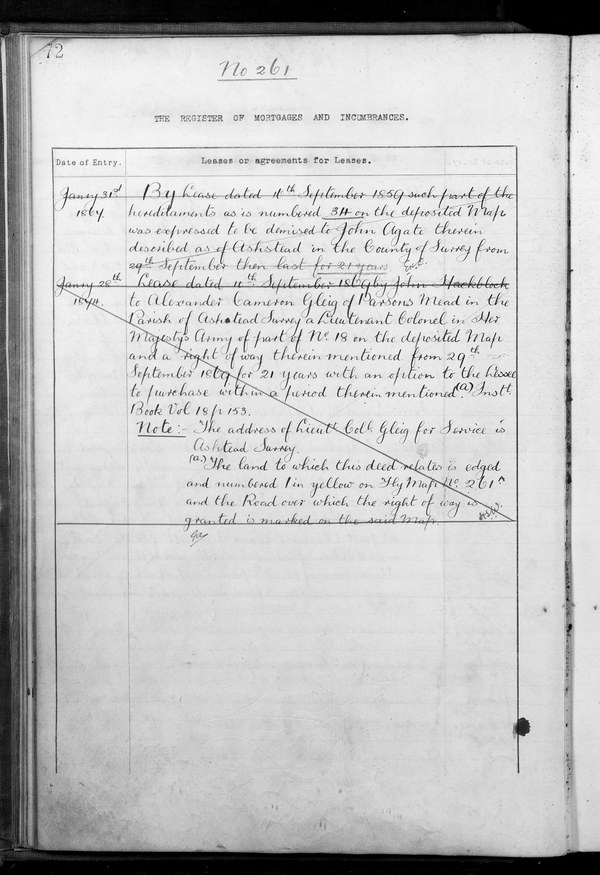 72
No 261
THE REGISTER OF MORTGAGES AND INCUMBRANCES.
Date of Entry.
Leases or agreements for Leases.
Janry 31st
1867.
By Lease dated 10th September 1859 such part of the
hereditaments as is numbered 34 on the deposited Map
was expressed to be demised to John Agate therein
described as of Ashstead in the County of Surrey from
29th September then last for 21 years
Janry 28th
Lease dated 10th September 1869 by John Hackblock
to Alexander Cameron Gleig of Parsons Mead in the
Parish of Ashstead Surrey a Lieutenant Colonel in Her
Majestys Army of part of No. 18 on the deposited Map
and a right of way therein mentioned from 29th
September 1869 for 21 years with an option to the Lessee
to purchase within a period therein mentioned. (a) Instt.
Book Vol 18 p 153.
Note:- The address of Lieutt. Coll. Gleig for Service is
Ashtead Surrey.
(a.) The land to which this deed relates is edged
and numbered 1 in yellow on Fly Map No. 261A
and the Road over which the right of way is
granted is marked on the said Map.